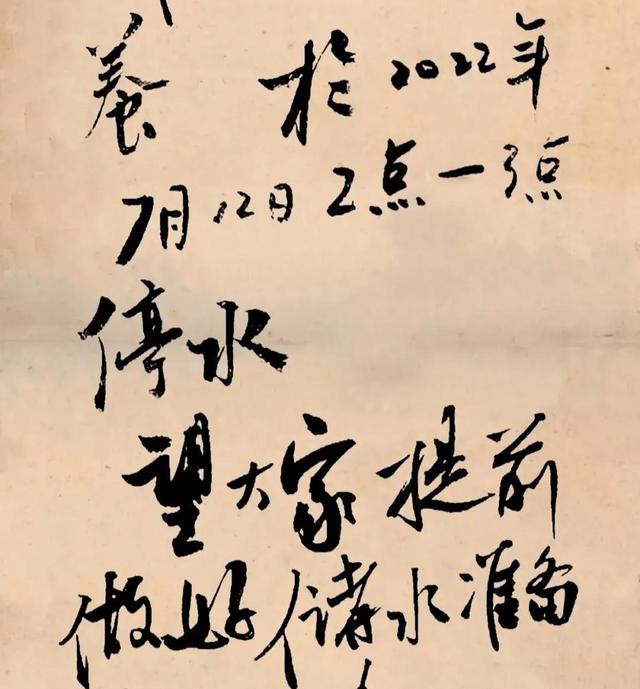 养 于2022年
7月12日2点一3点
停水
望大家提前
做好储水准备